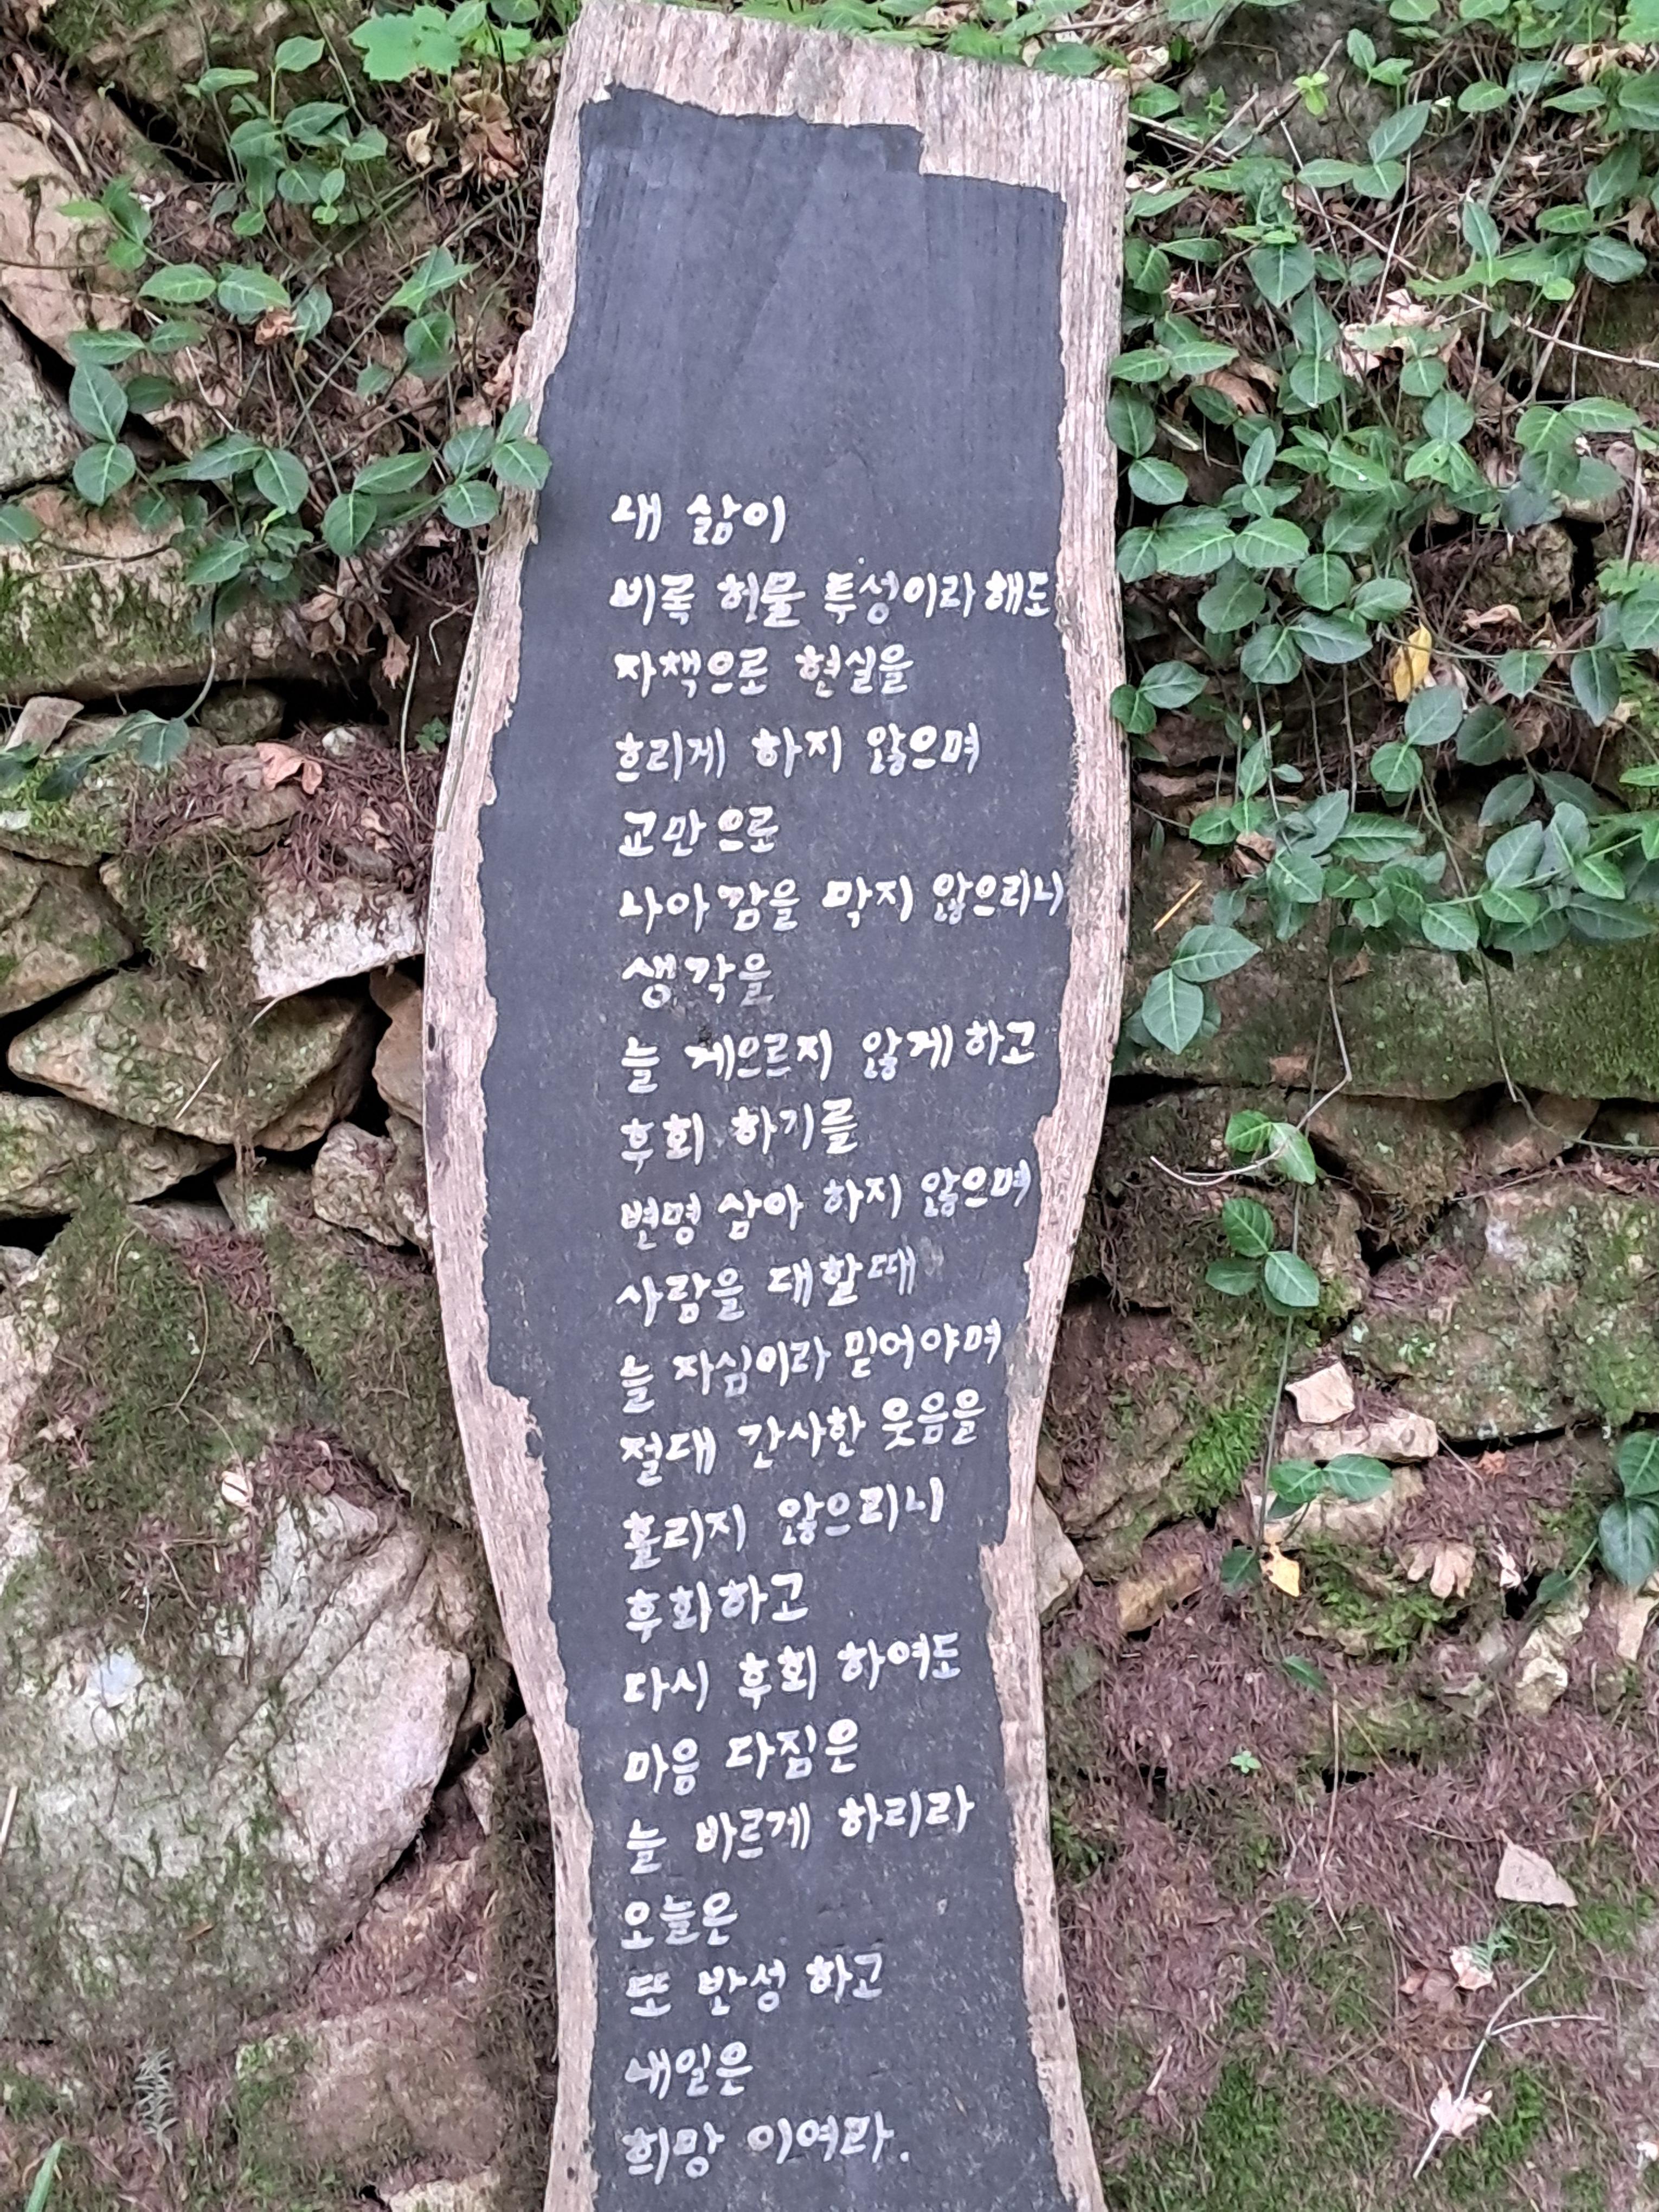 내 삶이
비록 허물 투성이라 해도
자책으로 현실을
흐리게 하지 않으며
교만으로
나아감을 막지 않으리니
생각을
늘 게으르지 않게 하고
후회 하기를
변명 삼아 하지 않으며
사람을 대할때
늘 자심이라 믿어야며
절대 간사한 웃음을
흘리지 않으리니
후회하고
다시 후회 하여도
마음 다짐은
늘 바르게 하리라
오늘은
또 반성 하고
내일은
희망 이여라.